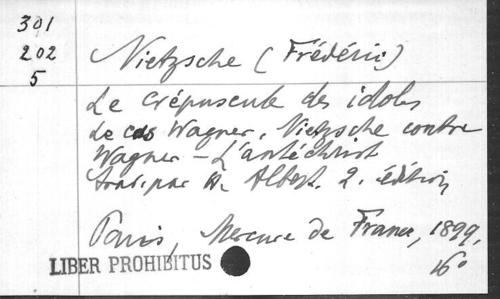 301
202
5
Nietzsche (Frédéric)
Le crépuscule des idoles
Le cas Wagner, Nietzsche contre
Wagner - L'antéchrist
trad. par H. Albert. 2. édition
Paris, Mercure de France, 1899,
16°
LIBER PROHIBITUS